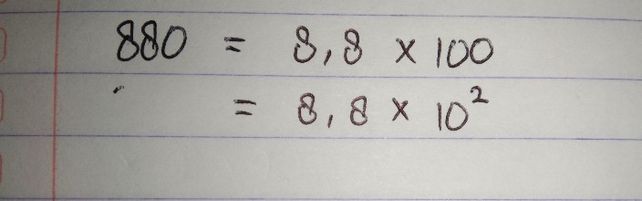 880 = 8,8 × 100
= 8,8 × 10²